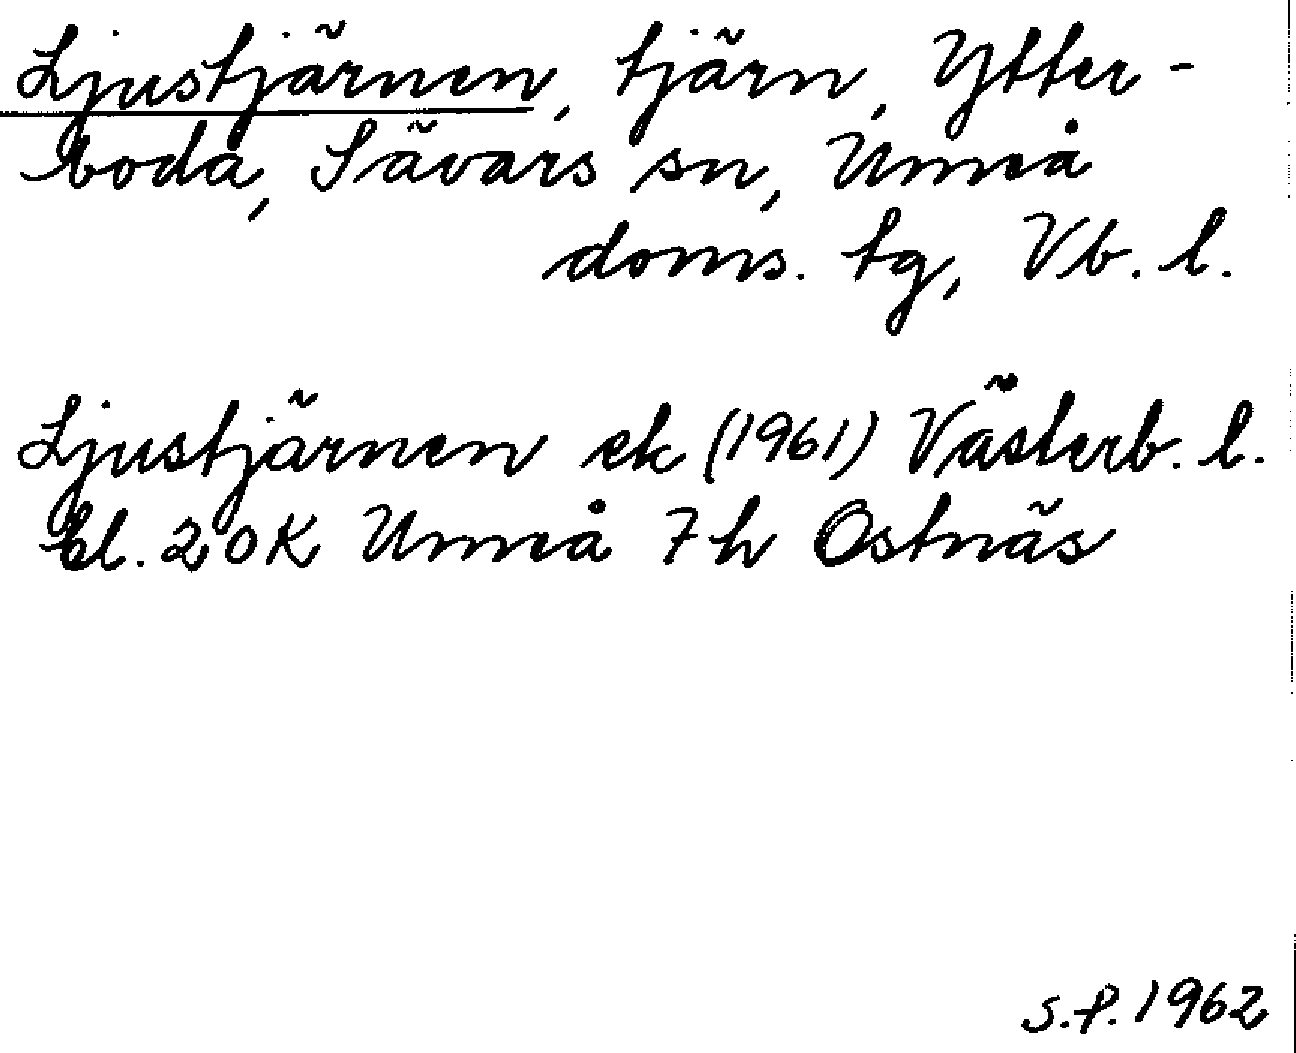 Ljustjärnen, tjärn, Ytter-
boda, Sävars sn, Umeå
doms. tg, Vb. l.
Ljustjärnen ek (1961) Västerb. l.
bl. 20K Umeå 7h Ostnäs
S.P. 1962